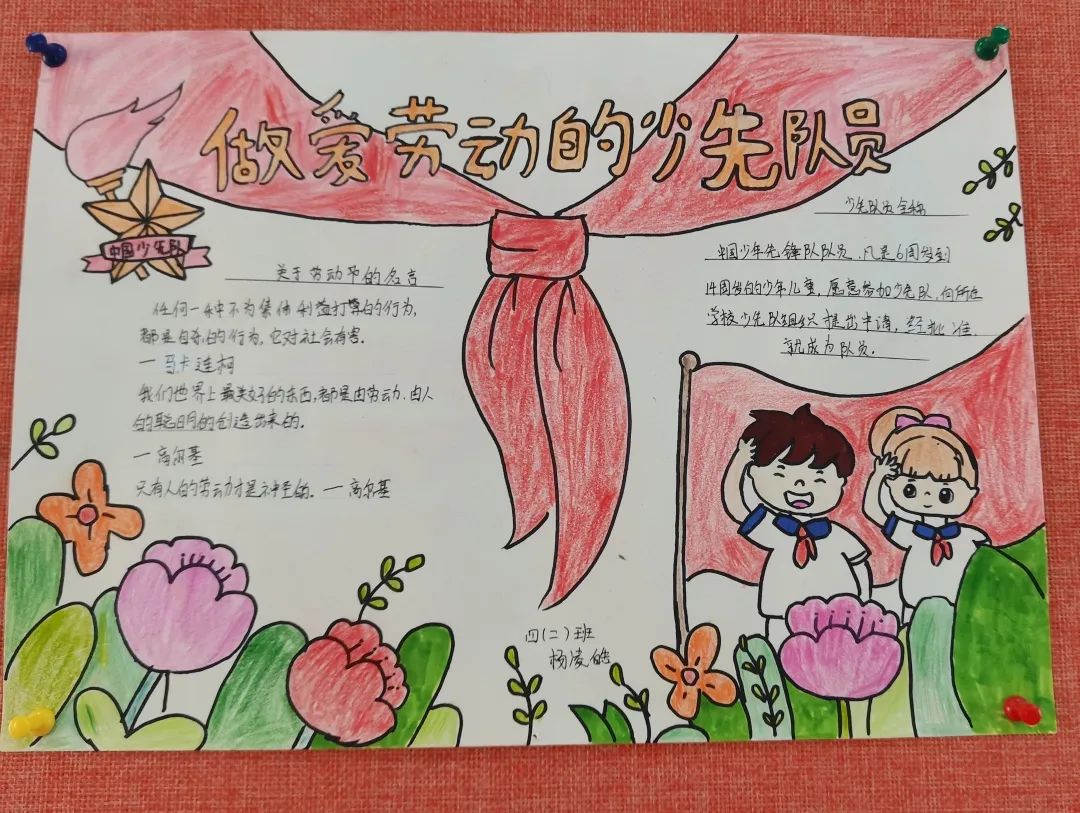 做爱劳动的少先队员
中国少先队
关于劳动节的名言
任何一种不为集体利益打算的行为,
都是自杀的行为,它对社会有害.
一马卡连柯
我们世界上最美好的东西,都是由劳动.由人
的聪明的创造出来的.
一高尔基
只有人的劳动才是神圣的.一高尔基
少先队员全称
中国少年先锋队队员.凡是6周岁到
14周岁的少年儿童,愿意参加少先队,向所在
学校少先队组织提出申请,经批准
就成为队员.
四(二)班
杨凌皓